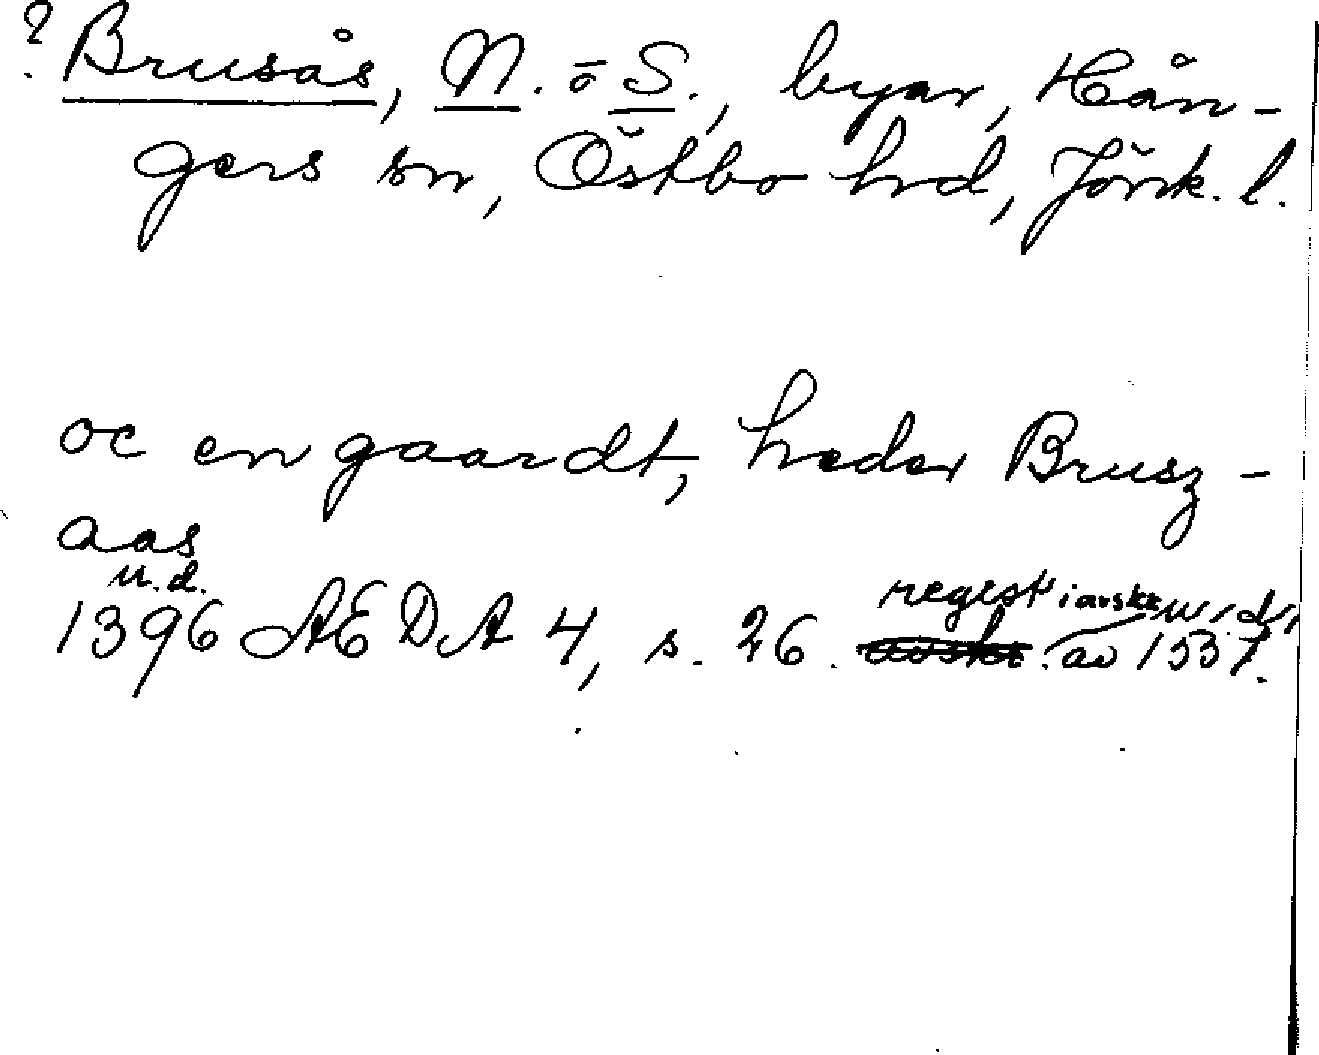 ? Brusås, N. o S., byar, Kån-
gers sn, Östbo hrd, Jönk. l.
oc en gaardt, heder Brusz-
aas
u.d.
1396 AEDA 4, s. 26. regest i avskr. u.d.
av 1537.